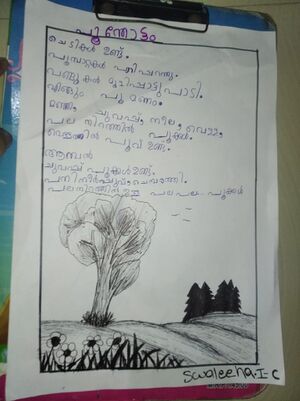 പൂന്തോട്ടം
ചെടികൾ ഉണ്ട്.
പൂമ്പാറ്റകൾ പാറിപ്പറന്നു.
വണ്ടുകൾ മൂളിപ്പാട്ടു പാടി.
എങ്ങും പൂ മണം.
മഞ്ഞ, ചുവപ്പു, നീല, വെള്ള
പല നിറത്തിൻ പൂക്കൾ.
പൂവ് ഉണ്ട്.
ആമ്പൽ
ചുവപ്പ് പൂക്കൾ ഉണ്ട്.
പനിനീർപ്പൂവും ചെമ്പരത്തി.
പലനിറത്തിൽ പല പല പൂക്കൾ
Swaleena. I-C